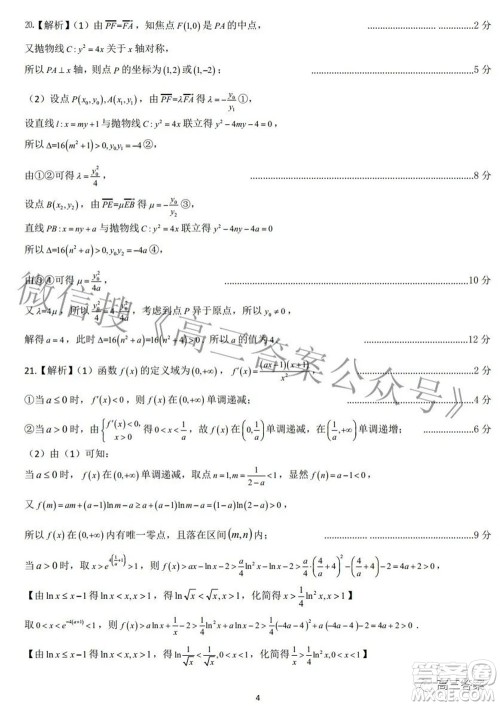 20.【解析】(1) 由 $\overline{PF}=\overline{FA}$，知焦点 F(1,0) 是 PA 的中点， ……2 分
又抛物线 C: y²=4x 关于 x 轴对称，
所以 PA⊥x 轴，则点 P 的坐标为 (1,2) 或 (1,-2)； ……5 分
(2) 设点 P(x₀,y₀), A(x₁,y₁)，由 $\overline{PF}=\lambda\overline{FA}$ 得 $\lambda=-\frac{y_0}{y_1}$ ①，
设直线 l: x=my+1 与抛物线 C: y²=4x 联立得 y²-4my-4=0，
所以，Δ=16(m²+1)>0, y₀y₁=-4 ②，
由①②可得 $\lambda=\frac{y_0^2}{4}$， ……8 分
设点 B(x₂,y₂)，由 $\overline{PE}=\mu\overline{EB}$ 得 $\mu=-\frac{y_0}{y_2}$ ③
直线 PB: x=ny+a 与抛物线 C: y²=4x 联立得 y²-4ny-4a=0
所以，Δ=16(n²+a)>0, y₀y₂=-4a ④，
由③④可得 $\mu=\frac{y_0^2}{4a}$， ……10 分
又 λ=4μ，所以 $\frac{y_0^2}{4}=4\cdot\frac{y_0^2}{4a}$，考虑到点 P 异于原点，所以 y₀≠0，
解得 a=4，此时 Δ=16(n²+a)=16(n²+4)>0，所以 a 的值为 4 ……12 分
21.【解析】(1) 函数 f(x) 的定义域为 (0,+∞)，$f'(x)=\frac{(ax+1)(x+1)}{x^2}$， ……2 分
①当 a≤0 时，f(x) 在 (0,+∞) 单调递减； ……4 分
②当 a>0 时，由 $\begin{cases}f'(x)<0\\x>0\end{cases}$ 得 $0<x<\frac{1}{a}$，f(x) 在 $\left(0,\frac{1}{a}\right)$ 单调递减，在 $\left(\frac{1}{a},+\infty\right)$ 单调递增； ……6 分
(2) 由 (1) 可知：
当 a≤0 时，f(x) 在 (0,+∞) 单调递减，又取点 $n=1,m=\frac{1}{2-a}<1$，显然 f(n)=f(1)=a-1<0，
又 f(m)=am+(a-1)ln m-a+2-2=am+(a-1)ln m-a=a(m-1)+(a-1)ln m>0
所以 f(x) 在 (0,+∞) 内有唯一零点，且落在区间 (m,n) 内； ……9 分
当 a>0 时，取 $x>e^{4\left(\frac{1}{a}+1\right)}>1$，则
【由 ln x≤x-1 得 ln x<x, x>1，得 $\ln\sqrt{x}<\sqrt{x},x>1$，化简得 $x>\frac{1}{4}\ln^2x,x>1$】
取 $0<x<e^{-4(a+1)}<1$，则
【由 ln x≤x-1 得 ln x<x, x>1，得 $\ln\frac{1}{\sqrt{x}}<\frac{1}{\sqrt{x}}$，化简得 $\frac{1}{x}>\frac{1}{4}\ln^2x,0<x<1$】
微信搜《高三答案公众号》
高三答案
4